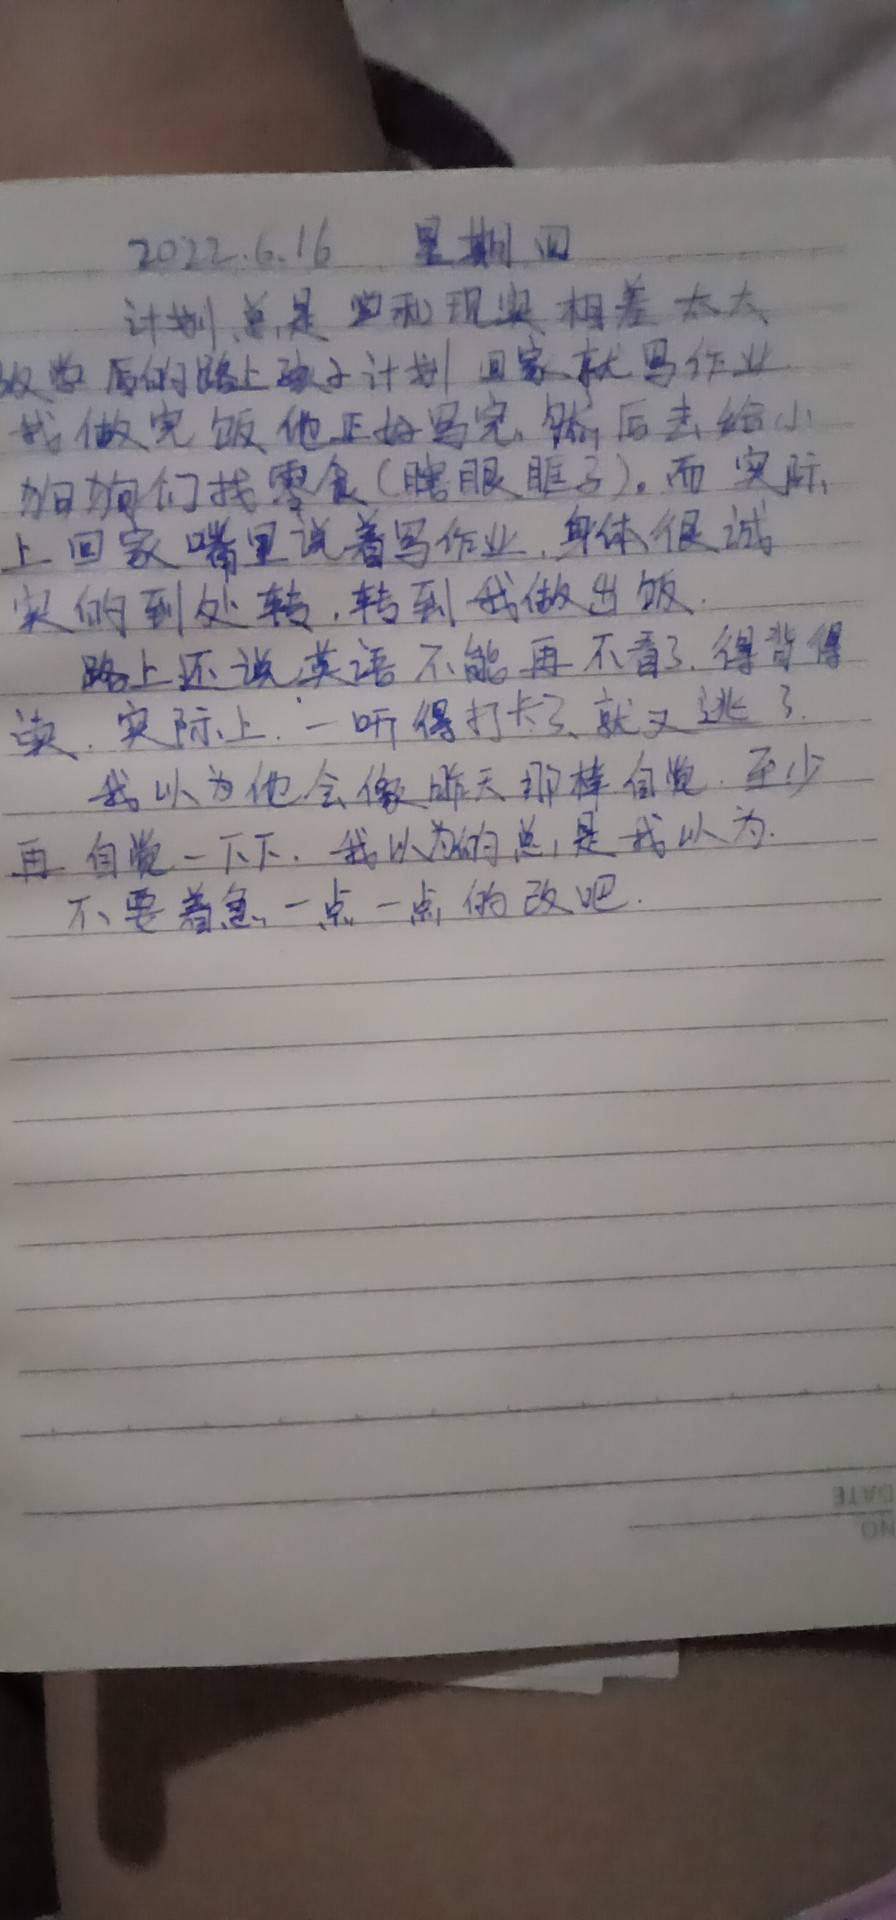 2022.6.16 星期四
计划总是会和现实相差太大
放学后的路上孩子计划回家就写作业
我做完饭他正好写完、然后去给小
狗狗们找零食(瞎眼眶子)。而实际
上回家嘴里说着写作业、身体很诚
实的到处转、转到我做出饭.
路上还说英语不能再不看了、得背得
读、实际上、一听得打卡了、就又逃了.
我以为他会像昨天那样自觉、至少
再自觉一下下. 我以为的总是我以为.
不要着急、一点一点的改吧.
DATE
NO